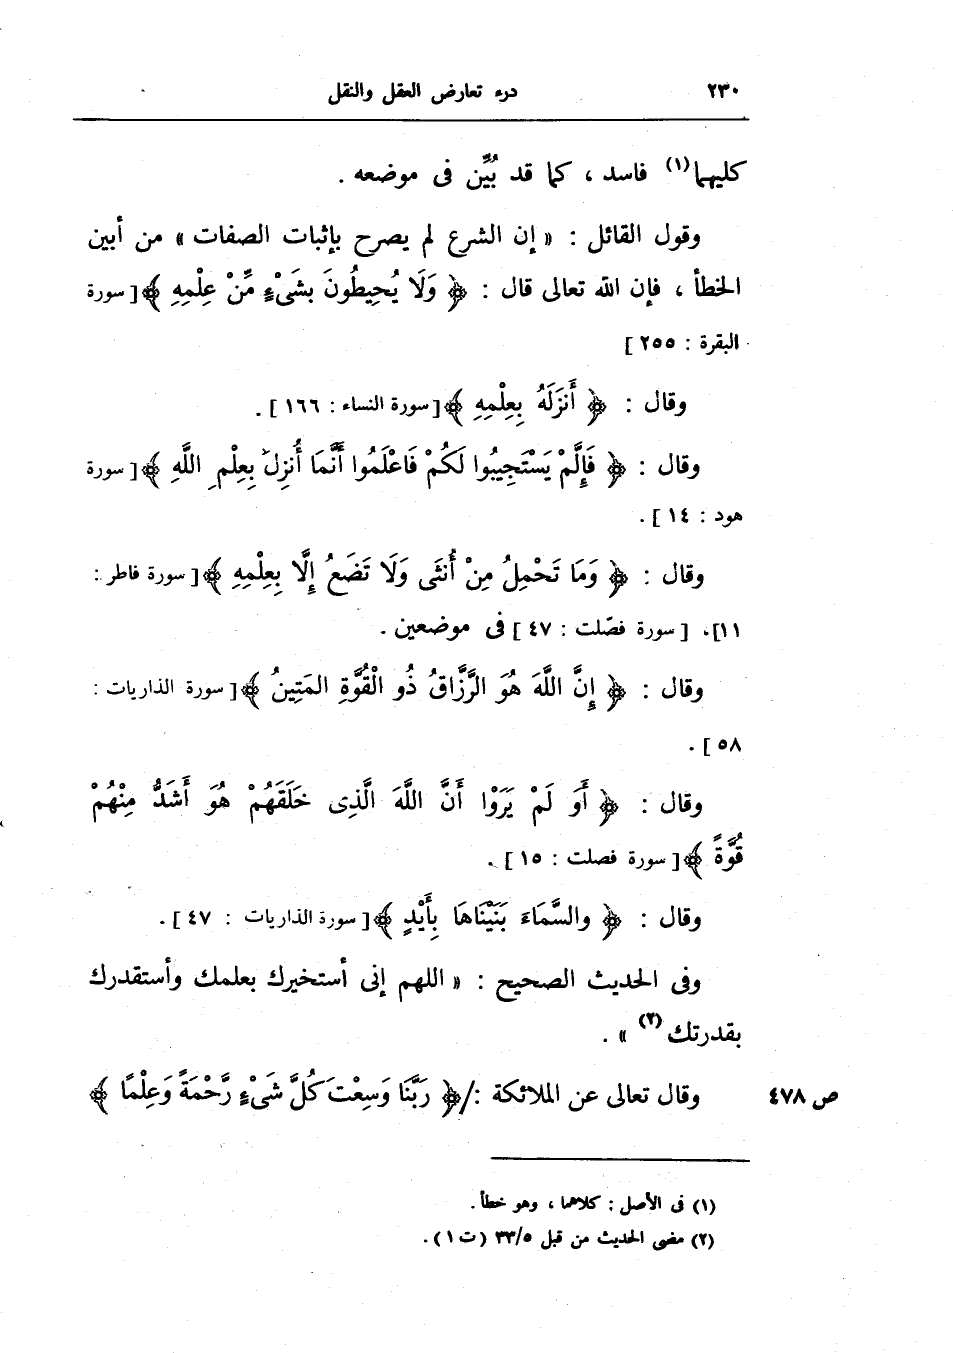 ٢٣٠ درء تعارض العقل والنقل
كليهما(١) فاسد ، كما قد بُيِّن فى موضعه .
وقول القائل : « إن الشرع لم يصرح بإثبات الصفات » من أبين
الخطأ ، فإن الله تعالى قال : ﴿ وَلَا يُحِيطُونَ بِشَىْءٍ مِّنْ عِلْمِهِ ﴾ [ سورة
البقرة : ٢٥٥ ]
وقال : ﴿ أَنزَلَهُ بِعِلْمِهِ ﴾ [ سورة النساء : ١٦٦ ] .
وقال : ﴿ فَإِلَّمْ يَسْتَجِيبُوا لَكُمْ فَاعْلَمُوا أَنَّمَا أُنزِلَ بِعِلْمِ اللَّهِ ﴾ [ سورة
هود : ١٤ ] .
وقال : ﴿ وَمَا تَحْمِلُ مِنْ أُنثَى وَلَا تَضَعُ إِلَّا بِعِلْمِهِ ﴾ [ سورة فاطر :
١١ ] ، [ سورة فصّلت : ٤٧ ] فى موضعين .
وقال : ﴿ إِنَّ اللَّهَ هُوَ الرَّزَّاقُ ذُو الْقُوَّةِ المَتِينُ ﴾ [ سورة الذاريات :
٥٨ ] .
وقال : ﴿ أَو لَمْ يَرَوْا أَنَّ اللَّهَ الَّذِى خَلَقَهُمْ هُوَ أَشَدُّ مِنْهُمْ
قُوَّةً ﴾ [ سورة فصلت : ١٥ ] .
وقال : ﴿ والسَّمَاءَ بَنَيْنَاهَا بِأَيْدٍ ﴾ [ سورة الذاريات : ٤٧ ] .
وفى الحديث الصحيح : « اللهم إنى أستخيرك بعلمك وأستقدرك
بقدرتك(٢) » .
وقال تعالى عن الملائكة :/ ﴿ رَبَّنَا وَسِعْتَ كُلَّ شَىْءٍ رَّحْمَةً وَعِلْمًا ﴾
ص ٤٧٨
(١) فى الأصل : كلاهما ، وهو خطأ .
(٢) مضى الحديث من قبل ٣٣/٥ (ت ١) .